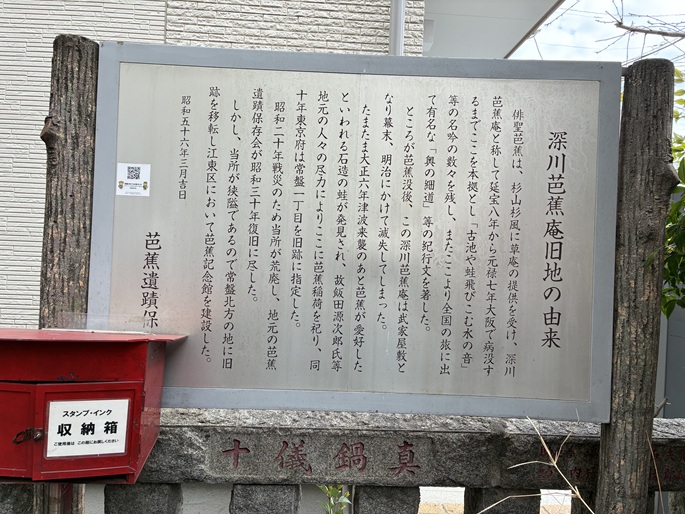 深川芭蕉庵旧地の由来
俳聖芭蕉は、杉山杉風に草庵の提供を受け、深川
芭蕉庵と称して延宝八年から元禄七年大阪で病没す
るまでここを本拠とし「古池や蛙飛びこむ水の音」
等の名吟の数々を残し、またここより全国の旅に出
て有名な「奥の細道」等の紀行文を著した。
ところが芭蕉没後、この深川芭蕉庵は武家屋敷と
なり幕末、明治にかけて滅失してしまった。
たまたま大正六年津波来襲のあと芭蕉が愛好した
といわれる石造の蛙が発見され、故飯田源次郎氏等
地元の人々の尽力によりここに芭蕉稲荷を祀り、同
十年東京府は常盤一丁目を旧跡に指定した。
昭和二十年戦災のため当所が荒廃し、地元の芭蕉
遺蹟保存会が昭和三十年復旧に尽した。
しかし、当所が狭隘であるので常盤北方の地に旧
跡を移転し江東区において芭蕉記念館を建設した。
昭和五十六年三月吉日
芭蕉遺蹟保
スタンプ・インク
収納箱
ご使用後は この箱にお戻しください
真鍋儀十